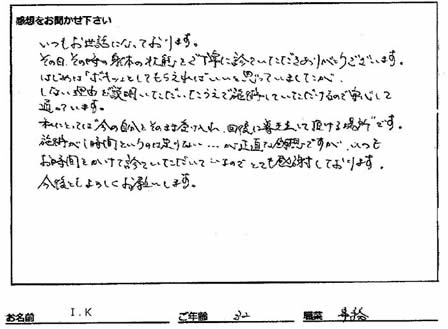 感想をお聞かせ下さい
いつもお世話になっております。
その日、その時の身体の状態をご丁寧に診ていただきありがとうございます。
はじめは「ボキッ」としてもらえればいいと思っていましたが、
しない理由を説明していただいたうえで施術していただけるので安心して
通っています。
私にとっては"今の自分をそのまま受け入れ、回復に導き直して頂ける場所"です。
施術が1時間というのは足りない…が正直な感想ですが、いつも
お時間をかけて診ていただいているのでとても感謝しております。
今後ともよろしくお願いします。
お名前 I.K ご年齢 32 職業